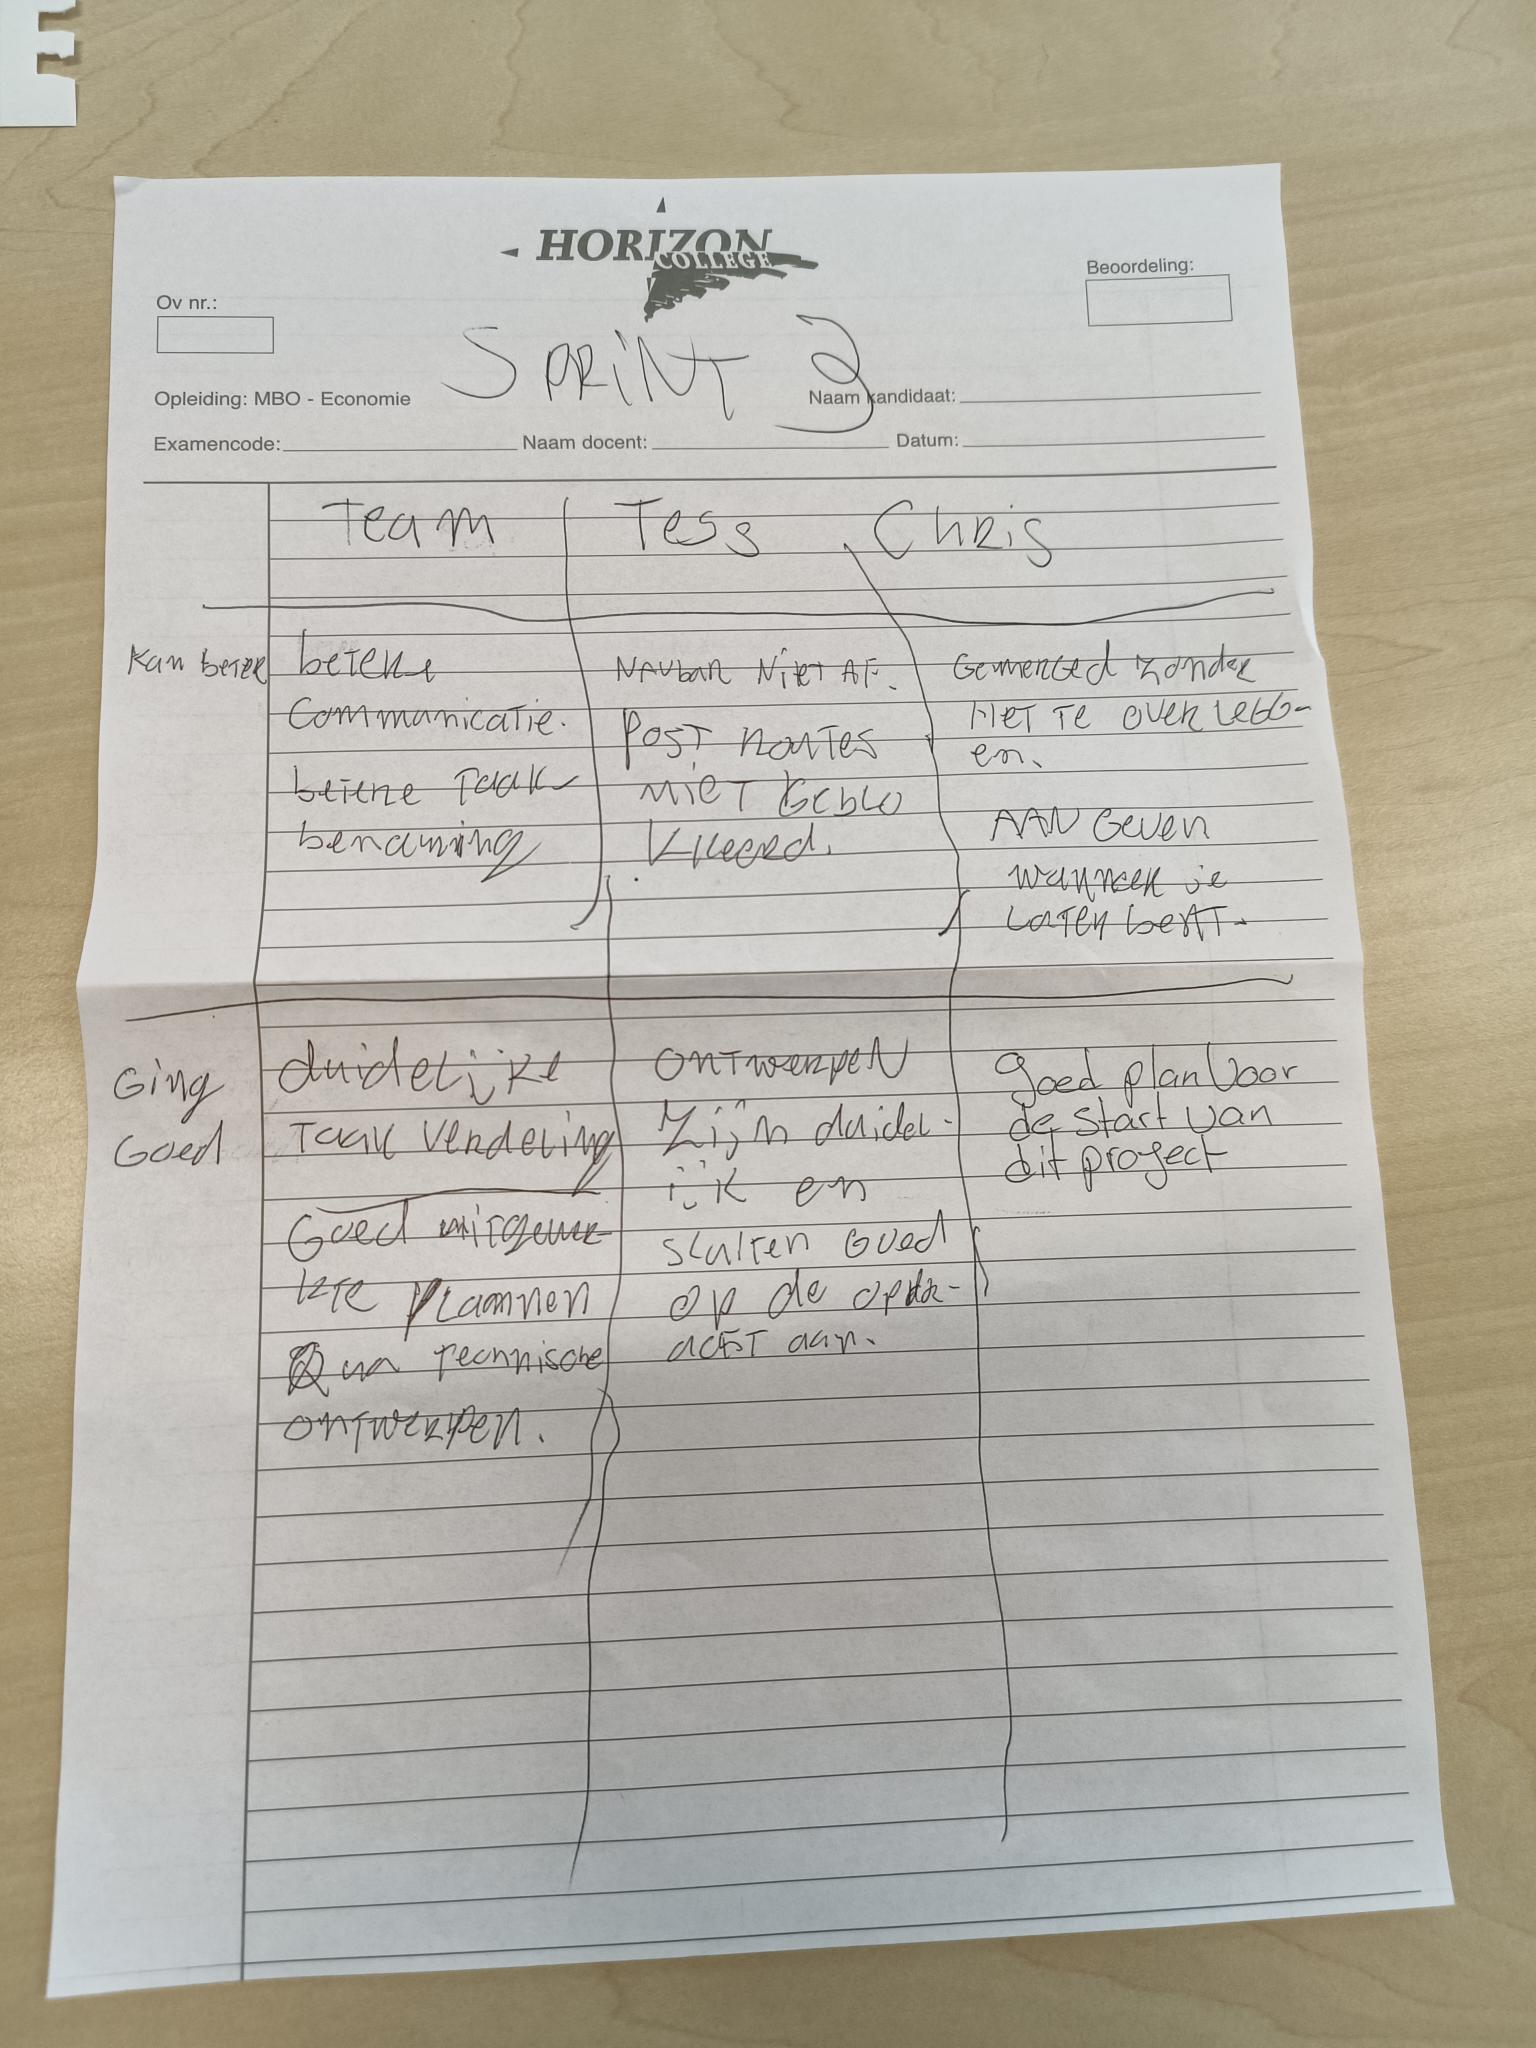 HORIZON
COLLEGE
Beoordeling:
Ov nr.:
SPRINT 2
Opleiding: MBO - Economie
Naam kandidaat:
Examencode:
Naam docent:
Datum:
Team
Tess
Chris
Kan beter
betere
Communicatie.
betere Taak
benaming
NAVbar Niet AF.
Post routes
niet Geblo
kkeerd.
Gemerged zonder
Het te overlegg-
en.
AAN Geven
wanneer je
Later bent.
Ging
Goed
duidelijke
Taak verdeling
Goed uitgewer-
kte plannen
Qua technische
ontwerpen.
ontwerpen
zijn duidel-
ijk en
sluiten goed
op de opdr-
acht aan.
goed plan voor
de start van
dit project